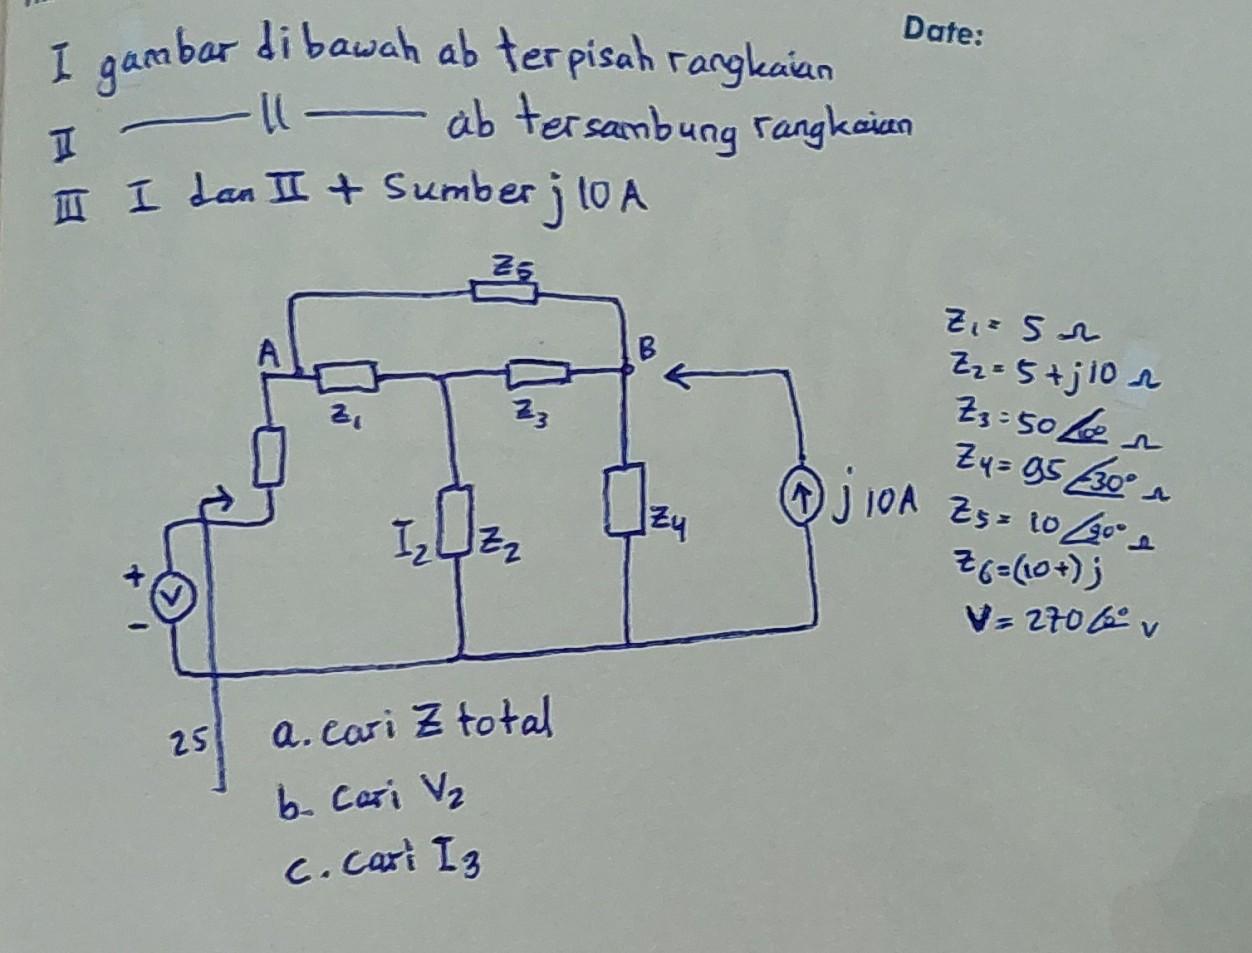 Date:
I gambar dibawah ab terpisah rangkaian
II —— 11 —— ab tersambung rangkaian
III I dan II + Sumber j 10 A
Z5
A
B
Z1
Z3
I2 Z2
Z4
j 10A
+
V
-
25
Z1 = 5 Ω
Z2 = 5 + j10 Ω
Z3 = 50 Ω
Z4 = 95 ∠-30° Ω
Z5 = 10 ∠90° Ω
Z6 = (10+) j
V = 270 ∠0° V
a. cari Z total
b. Cari V2
c. cari I3